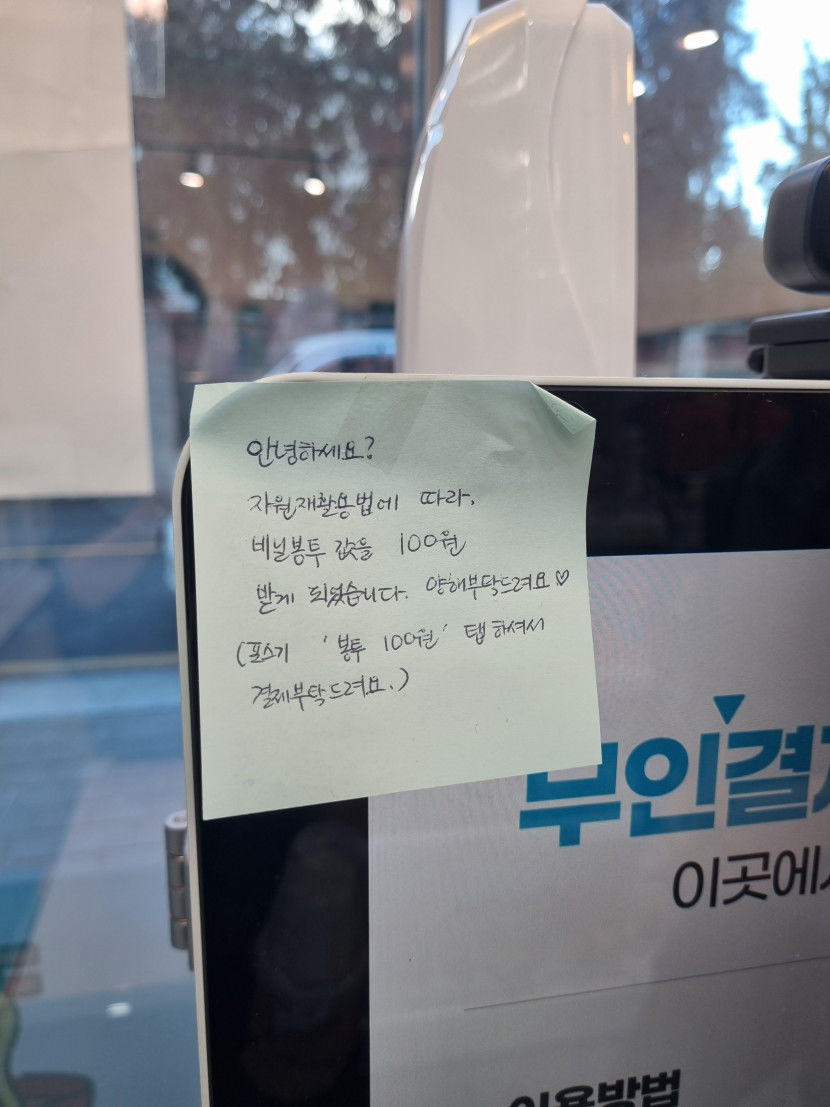 안녕하세요?
자원재활용법에 따라,
비닐봉투 값을 100원
받게 되었습니다. 양해부탁드려요♡
(포스기 '봉투 100원' 탭하셔서
결제부탁드려요.)
이곳에서
이용방법